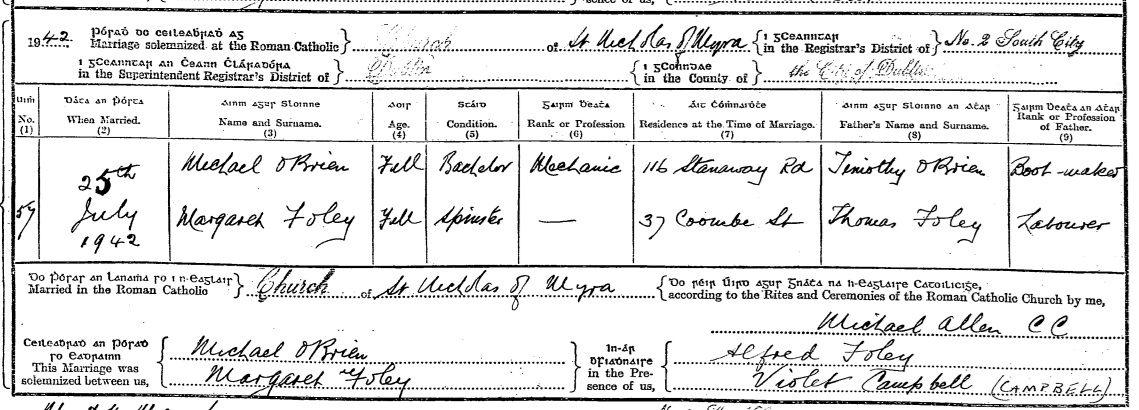 1942. Pósaḋ do ceileaḃraḋ ag
Marriage solemnized at the Roman Catholic } Church of St Nicholas of Myra { i gCeanntar
in the Registrar's District of } No. 2 South City
i gCeanntar an Ċeann Ċláraḋóra
in the Superintendent Registrar's District of } Dublin { i gConndae
in the County of } the City of Dublin
Uiṁ
No.
(1)
Dáta an Pósta
When Married.
(2)
Ainm agus Sloinne
Name and Surname.
(3)
Aois
Age.
(4)
Stáid
Condition.
(5)
Gairm Beaṫa
Rank or Profession
(6)
Áit Cóṁnuiḋṫe
Residence at the Time of Marriage.
(7)
Ainm agus Sloinne an Aṫar
Father's Name and Surname.
(8)
Gairm Beaṫa an Aṫar
Rank or Profession
of Father.
(9)
57
25th
July
1942
Michael O'Brien Full Bachelor Mechanic 116 Stanaway Rd Timothy O'Brien Boot-maker
Margaret Foley Full Spinster — 37 Coombe St Thomas Foley Labourer
Do Pósaḋ an Lanaṁa so i n-eaglais
Married in the Roman Catholic } Church of St Nicholas of Myra { Do réir Úird agus Gnáṫa na h-Eaglaise Catoilicíġe,
according to the Rites and Ceremonies of the Roman Catholic Church by me,
Michael Allen CC
Ceileaḃraḋ an Pósaḋ
so eadrainn
This Marriage was
solemnized between us, { Michael O'Brien
Margaret Foley
In-ár
ḃFiaḋnaire
in the Pre-
sence of us, { Alfred Foley
Violet Campbell (CAMPBELL)